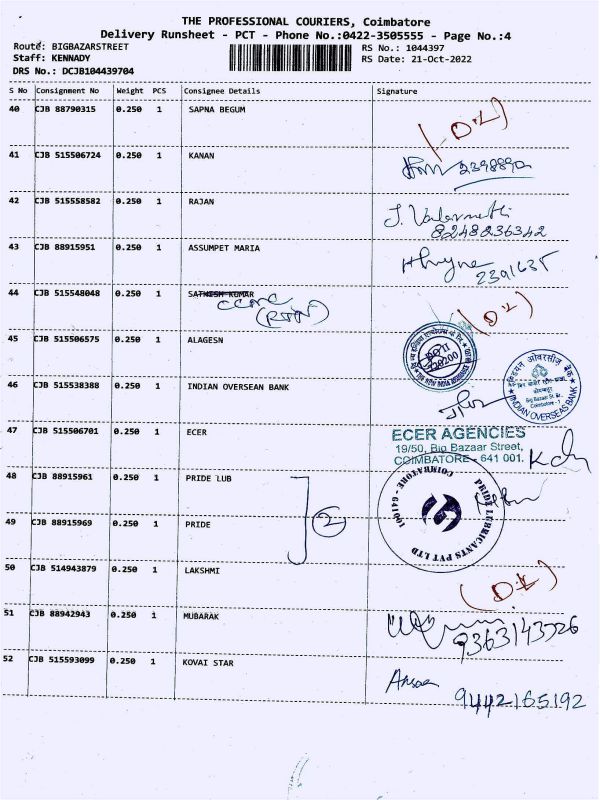 THE PROFESSIONAL COURIERS, Coimbatore
Delivery Runsheet - PCT - Phone No.:0422-3505555 - Page No.:4
Route: BIGBAZARSTREET
RS No.: 1044397
Staff: KENNADY
RS Date: 21-Oct-2022
DRS No.: DCJB104439704
S No Consignment No Weight PCS Consignee Details Signature
40 CJB 88790315 0.250 1 SAPNA BEGUM
41 CJB 515506724 0.250 1 KANAN
42 CJB 515558582 0.250 1 RAJAN
8248236342
43 CJB 88915951 0.250 1 ASSUMPET MARIA
2391635
44 CJB 515548048 0.250 1 SATHISH KUMAR
45 CJB 515506575 0.250 1 ALAGESN
46 CJB 515538388 0.250 1 INDIAN OVERSEAN BANK
इंडियन ओवरसीज़ बैंक
Big Bazaar St. Br.
Coimbatore - 1
INDIAN OVERSEAS BANK
47 CJB 515506701 0.250 1 ECER
ECER AGENCIES
19/50, Big Bazaar Street,
COIMBATORE - 641 001.
48 CJB 88915961 0.250 1 PRIDE LUB
2
PRIDE LUBRICANTS PVT LTD
COIMBATORE - 641 001
49 CJB 88915969 0.250 1 PRIDE
50 CJB 514943879 0.250 1 LAKSHMI
51 CJB 88942943 0.250 1 MUBARAK
9363143526
52 CJB 515593099 0.250 1 KOVAI STAR
9442165192